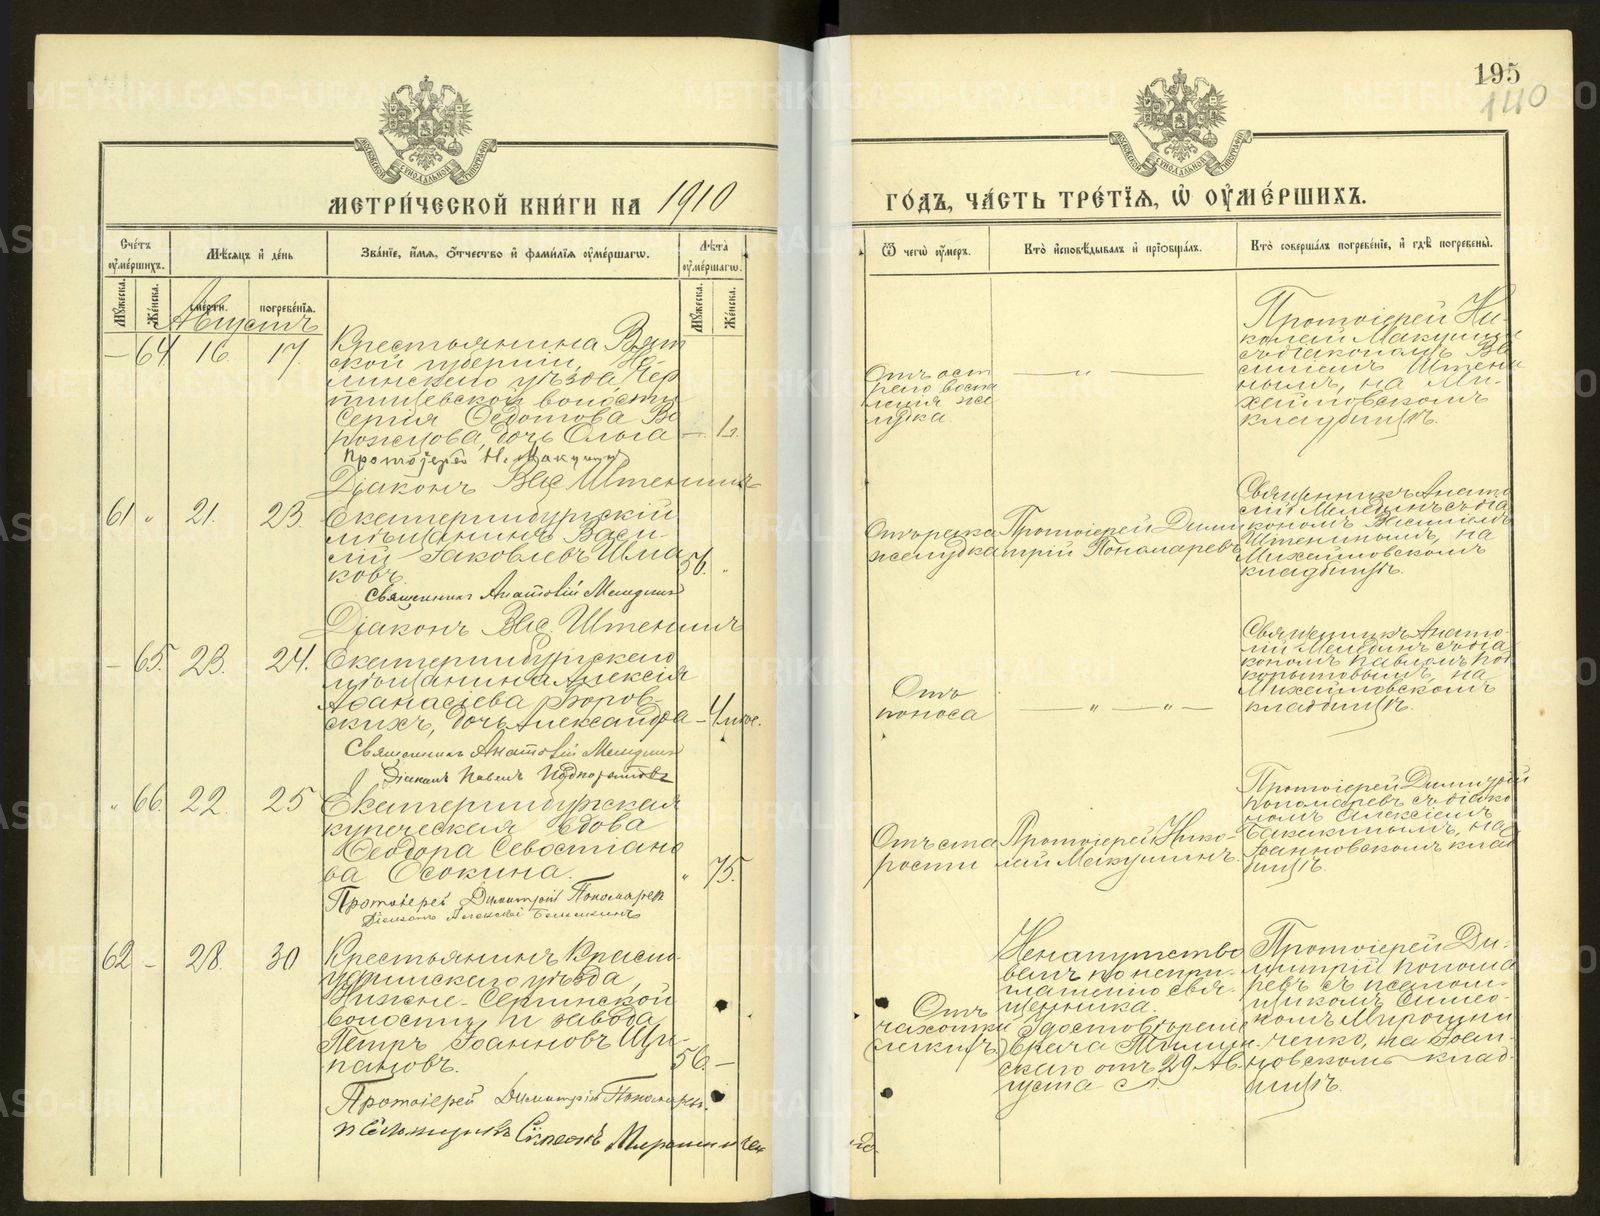 195
140
МОСКОВСКОЙ СѴНОДАЛЬНОЙ ТИПОГРАФІИ
МОСКОВСКОЙ СѴНОДАЛЬНОЙ ТИПОГРАФІИ
МЕТРИ́ЧЕСКОЙ КНИ́ГИ НА 1910
ГО́ДЪ, ЧА́СТЬ ТРЕ́ТІЯ, Ѡ҆ ОУ҆МЕ́РШИХЪ.
Сче́тъ оу҆ме́ршихъ.
Мѣ́сяцъ и҆ де́нь
Зва́нїе, и҆́мѧ, ѻ҆́тчество и҆ фамѝлїѧ оу҆ме́ршагѡ.
Лѣ́та оу҆ме́ршагѡ.
Му́жеска.
Же́нска.
сме́рти.
погребе́нїѧ.
Му́жеска.
Же́нска.
Ѿ чегѡ̀ оу҆́меръ.
Кто̀ и҆сповѣ́дывалъ и҆ прїѡбща́лъ.
Кто̀ соверша́лъ погребе́нїе, и҆ гдѣ̀ погребены̀.
Августъ
— 64 16. 17.
Крестьянина Вят
ской губерніи, Но-
линскаго уѣзда Чер
тищевской волости
Сергія Ѳедотова Во
рожцова, дочь Ольга — 1 г.
Протоіерей Н. Макушин
Діаконъ Вас. Штенинъ
Отъ ост
раго воспа
ленія же
лудка.
— „ —
Протоіерей Ни-
колай Макушинъ
съ діакономъ Ва
силіемъ Штени
нымъ, на Ми-
хайловскомъ
кладбищѣ.
61 „ 21. 23.
Екатеринбургскій
мѣщанинъ Васи-
лій Іаковлевъ Шма
ковъ. 56. „
Священник Анатолій Меледин
Діаконъ Вас. Штенинъ
Отъ рака
желудка
Протоіерей Дими
трій Пономаревъ
Священникъ Анато
лій Мелединъ съ діа
кономъ Василіемъ
Штенинымъ, на
Михайловскомъ
кладбищѣ.
— 65. 23. 24.
Екатеринбургскаго
мѣщанина Алексія
Аѳанасіева Боров
скихъ, дочь Александра — 4 мѣс.
Священник Анатолій Меледин
Діаконъ Павелъ Подкорытовъ
Отъ
поноса
— „ — „ —
Священникъ Анато-
лій Мелединъ съ діа
кономъ Павломъ Под
корытовымъ, на
Михайловскомъ
кладбищѣ.
„ 66. 22. 25
Екатеринбургская
купеческая вдова
Ѳеодора Севостiано
ва Осокина. „ 75.
Протоіерей Димитрій Пономарев
Діаконъ Алексій Бакакинъ
Отъ ста
рости
Протоіерей Нико-
лай Макушинъ.
Протоіерей Димитрій
Пономаревъ съ діако
номъ Алексіемъ
Бакакинымъ, на
Іоанновскомъ клад
бищѣ.
62 — 28. 30
Крестьянинъ Красно-
уфимскаго уѣзда,
Нижне-Сергинской
волости и завода
Петръ Іоанновъ Щи-
пановъ. 56. —
Протоіерей Димитрій Пономарев.
Псаломщикъ Симеонъ Мирошничен
ко.
Отъ
чахотки
легкихъ
Ненапутство
ванъ по непри-
глашенію свя-
щенника.
Удостовѣреніе
врача
скаго отъ 29 Ав-
густа с/г.
Протоіерей Ди-
митрій Понома
ревъ съ псалом-
щикомъ Симео-
номъ Мирошни
ченко, на Іоан-
новскомъ клад-
бищѣ.